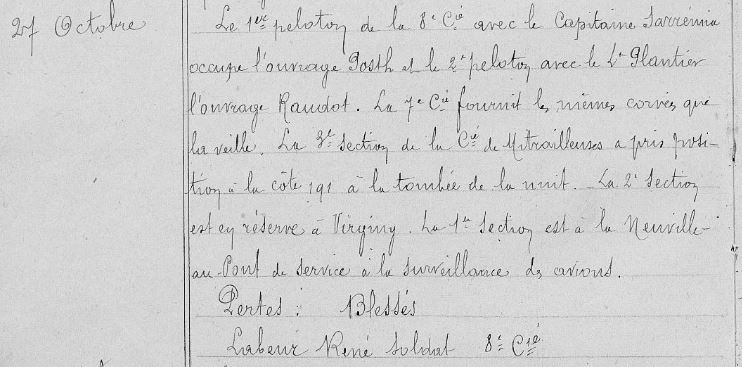 27 Octobre
Le 1er peloton de la 8e Cie avec le Capitaine Sarrémia
occupe l'ouvrage Posth et le 2e peloton avec le Lt Plantier
l'ouvrage Raudot. La 7e Cie fournit les mêmes corvées que
la veille. La 3e Section de la Cie de Mitrailleuses a pris posi-
tion à la côte 191 à la tombée de la nuit. La 2e Section
est en réserve à Virginy. La 1re Section est à la Neuville-
au-Pont de service à la surveillance des avions.
Pertes : Blessés
Labeur René soldat 8e Cie